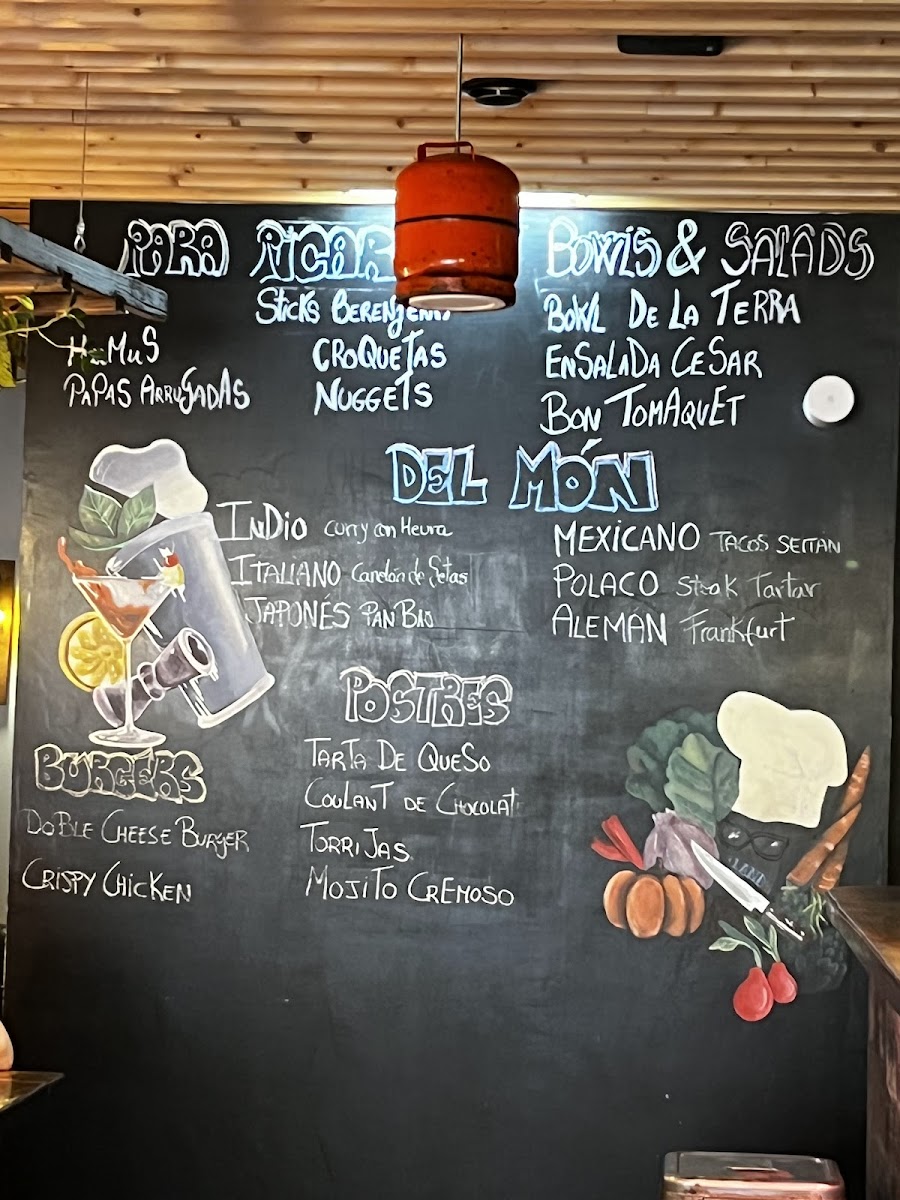 PARA PICAR
STICKS BERENJENA
HuMuS
CROQUETAS
PAPAS ARRUGADAS
NUGGETS
BOWLS & SALADS
BOWL DE LA TERRA
ENSALADA CESAR
BON TOMAQUET
DEL MÓN
INDIO curry con Heura
ITALIANO Canelón de Setas
JAPONÉS PAN BAO
MEXICANO TACOS SEITAN
POLACO Steak Tartar
ALEMÁN Frankfurt
POSTRES
TARTA DE QUESO
COULANT DE CHOCOLAT
TORRIJAS
MOJITO CREMOSO
BURGERS
DOBLE CHEESE BURGER
CRISPY CHICKEN